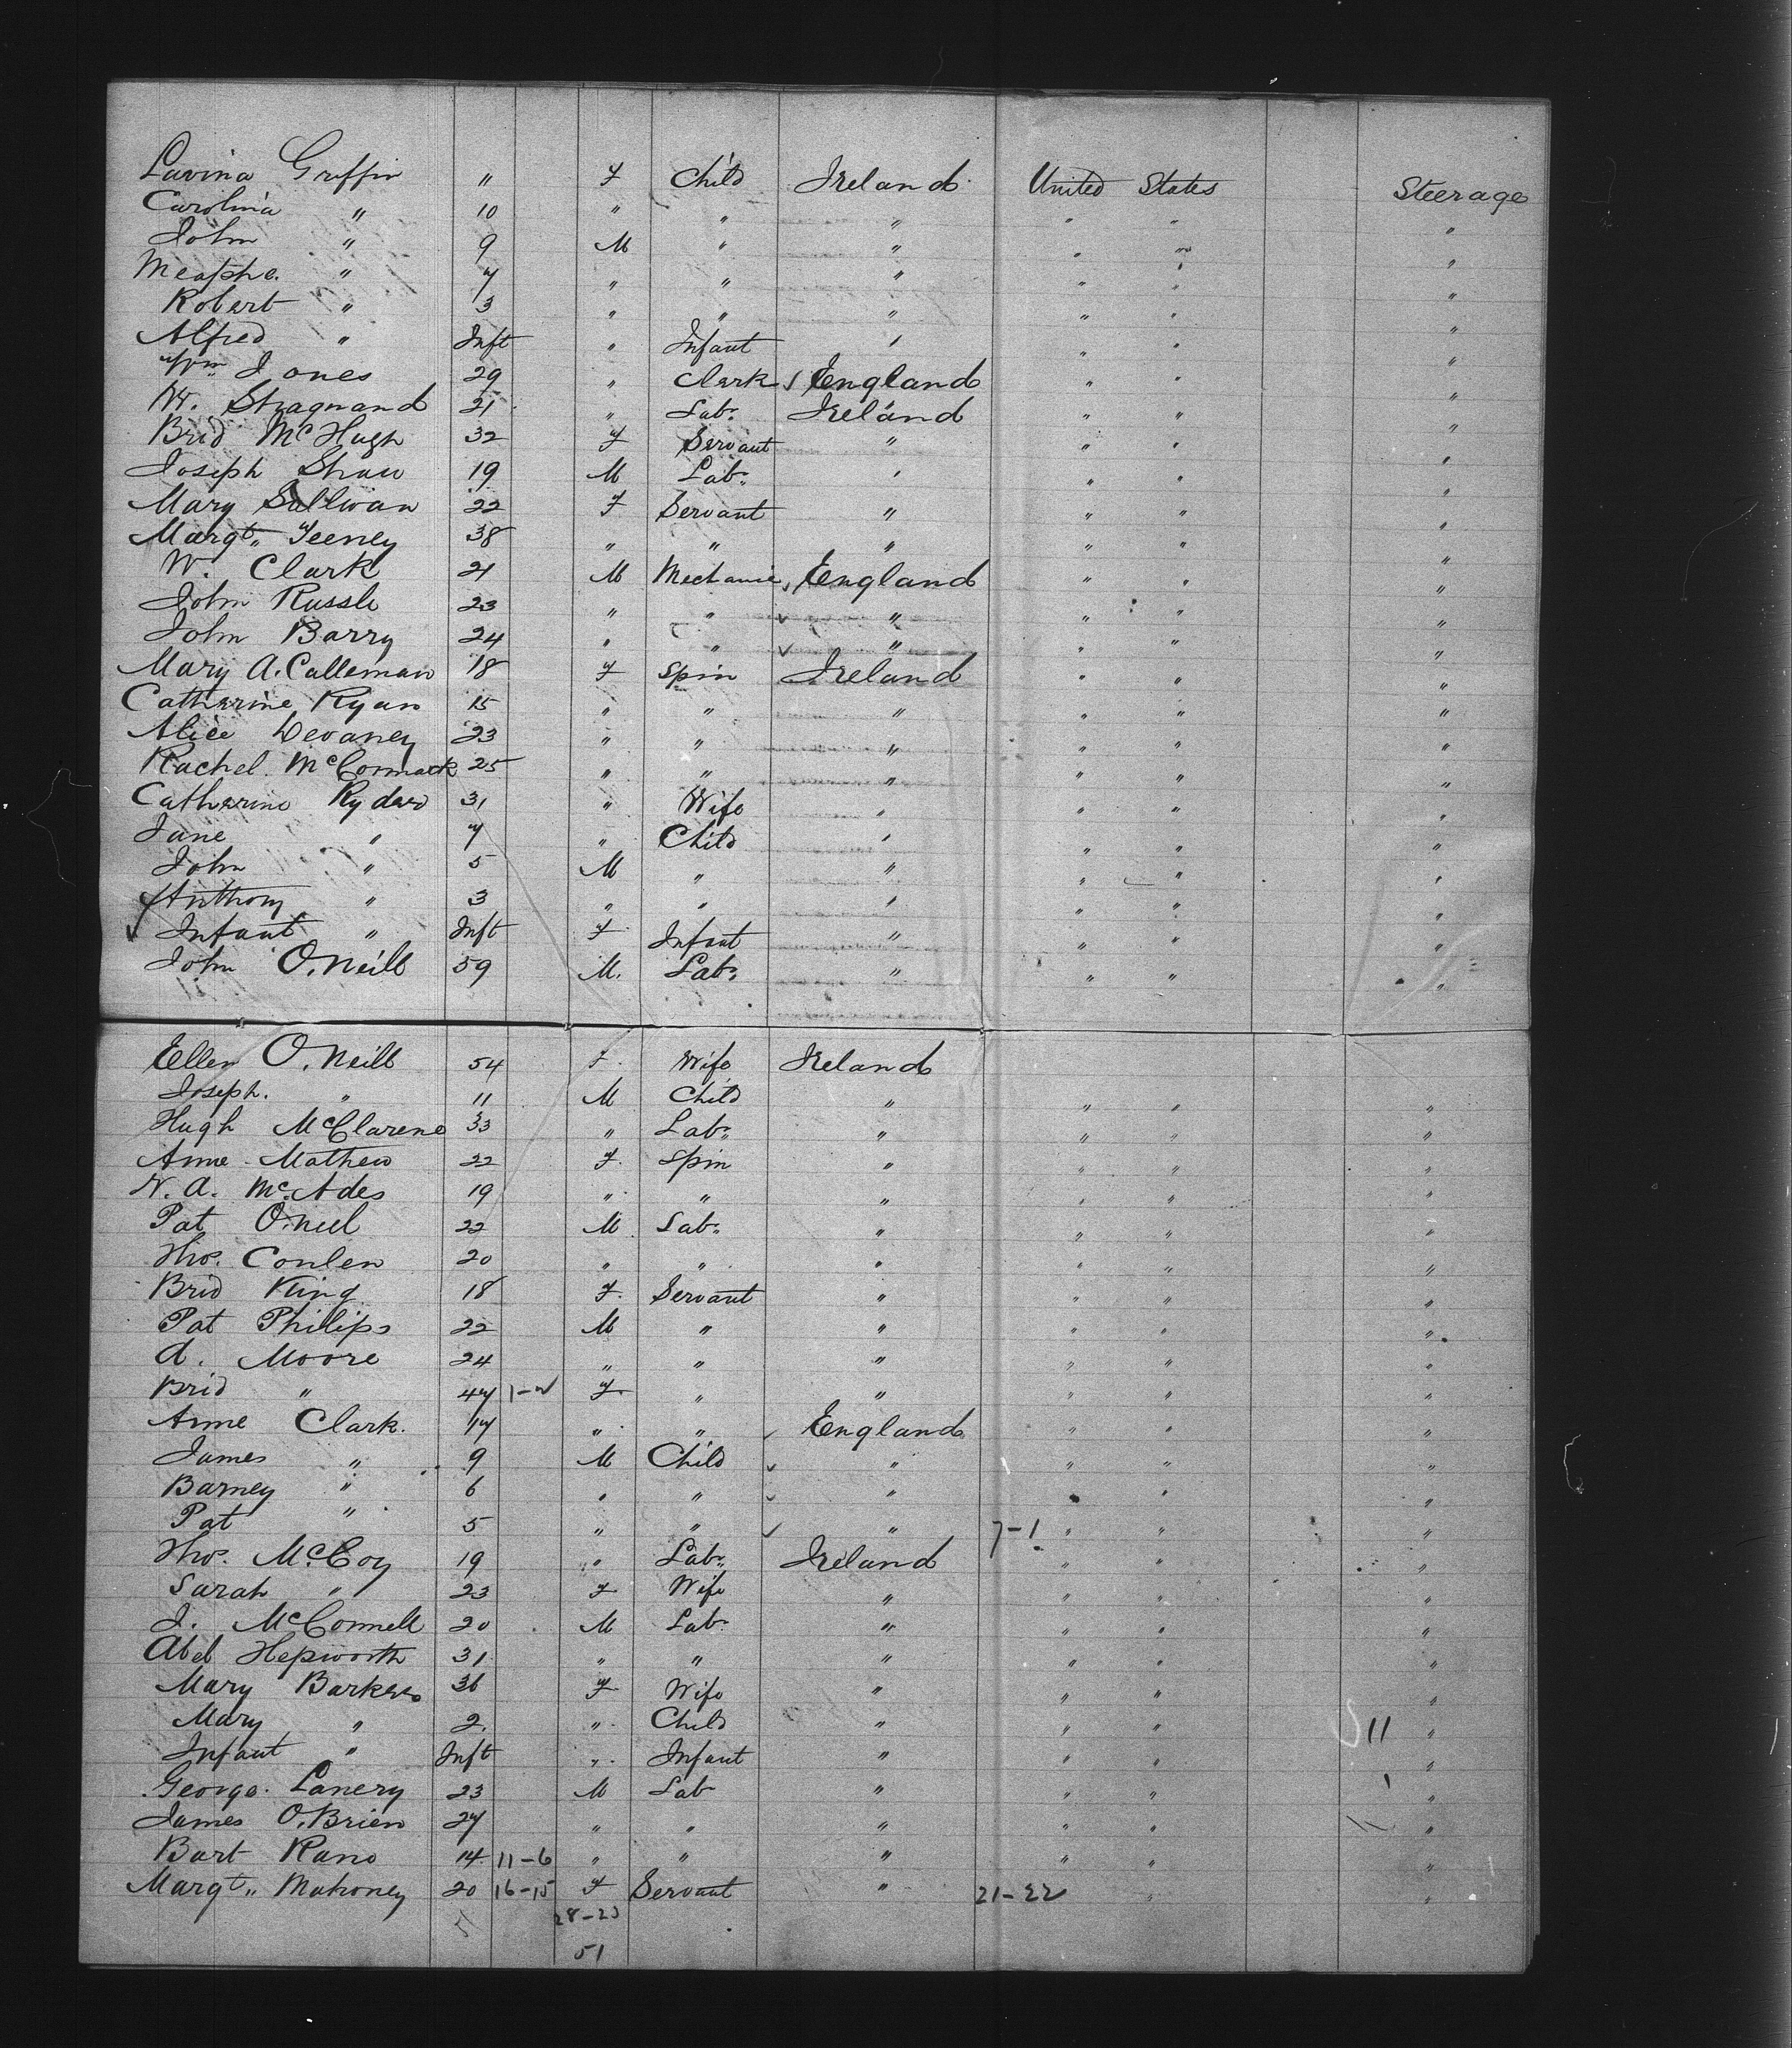 Lavina Griffin " F Child Ireland United States Steerage
Carolina " 10 " " " " " "
John " 9 M " " " " "
" 7 " " " " " "
Robert " 3 " " " " " "
Alfred " Inft " Infant " " " "
Wm Jones 29 " Clerk England " " "
21 " Lab. Ireland " " "
Brid McHugh 32 F Servant " " " "
Joseph Shaw 19 M Lab. " " " "
Mary Sullivan 22 F Servant " " " "
Margt. Feeney 38 " " " " " "
W. Clark 21 M Mechanic England " " "
John Russle 23 " " " " " "
John Barry 24 " " " " " "
Mary A. Calleman 18 F Spin Ireland " " "
Catherine Ryan 15 " " " " " "
Alice Devaney 23 " " " " " "
Rachel McCormack 25 " " " " " "
Catherine Ryder 31 " Wife " " " "
Jane " 7 " Child " " " "
John " 5 M " " " " "
Anthony " 3 " " " " " "
Infant " Inft F Infant " " " "
John O'Neill 59 M. Lab. " " " "
Ellen O'Neill 54 F. Wife Ireland
Joseph. " 11 M Child " " " "
Hugh McClarene 33 " Lab. " " " "
Anne Mathew 22 F. Spin " " " "
N. A. McAdes 19 " " " " " "
Pat O'neil 22 M Lab. " " " "
Thos. Conlen 20 " " " " " "
Brid King 18 F. Servant " " " "
Pat Philips 22 M " " " " "
A. Moore 24 " " " " " "
Brid " 47 1-2 F. " " " " "
Anne Clark. 17 " " England " " "
James " 9 M Child " " " "
Barney " 6 " " " " " "
Pat " 5 " " " 7-1 " " "
Thos. McCoy 19 " Lab. Ireland " " "
Sarah " 23 F Wife " " " "
J. McConnell 20 M Lab. " " " "
Abel Hepworth 31 " " " " " "
Mary Barker 36 F Wife " " " "
Mary " 2. " Child " " " 11 "
Infant " Inft " Infant " " " "
George Lanery 23 M Lab " " " "
James O'Brien 27 " " " " " "
Bart Rano 14 11-6 " " " " " "
Margt. Mahoney 20 16-15 F Servant " 21-22 " "
28-23
51